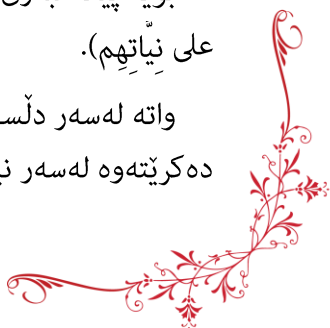 على نِيّاتِهِم).
واتە لەسەر دڵس
دەکرێتەوە لەسەر نی